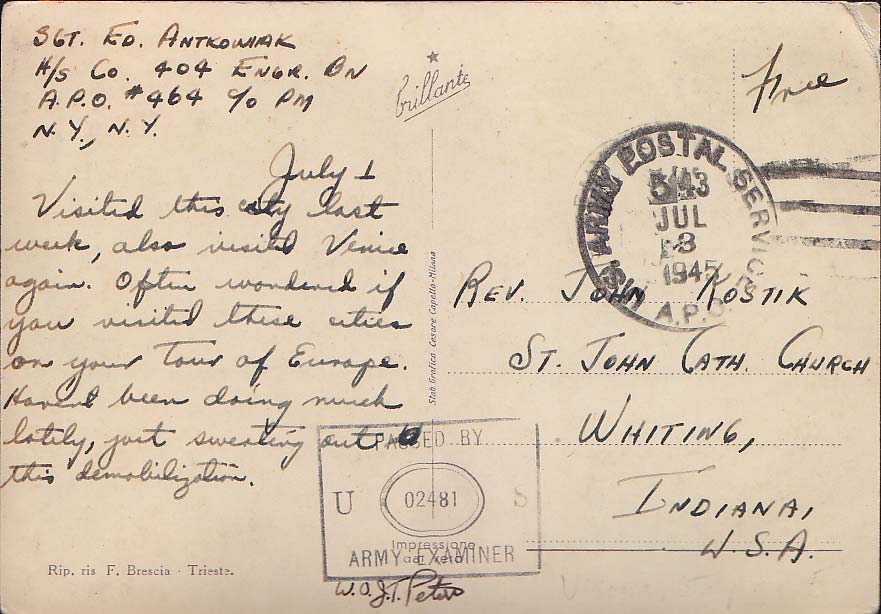 SGT. ED. ANTKOWIAK
H/S CO. 404 ENGR. BN
A.P.O. #464 c/o PM
N.Y., N.Y.
July 1
Visited this city last
week, also visited Venice
again. Often wondered if
you visited these cities
on your Tour of Europe.
Havent been doing much
lately, just sweating out
this demobilization.
Rip. ris F. Brescia - Trieste.
Brillante
Stab. Grafico Cesare Capello-Milano
Free
U.S. ARMY POSTAL SERVICE
A.P.O.
543
JUL
3
1945
REV. JOHN KOSTIK
ST. JOHN CATH. CHURCH
WHITING,
INDIANA,
U.S.A.
PASSED BY
U 02481 S
Impressione
dal vero
ARMY EXAMINER
W.O. J.T. Peters